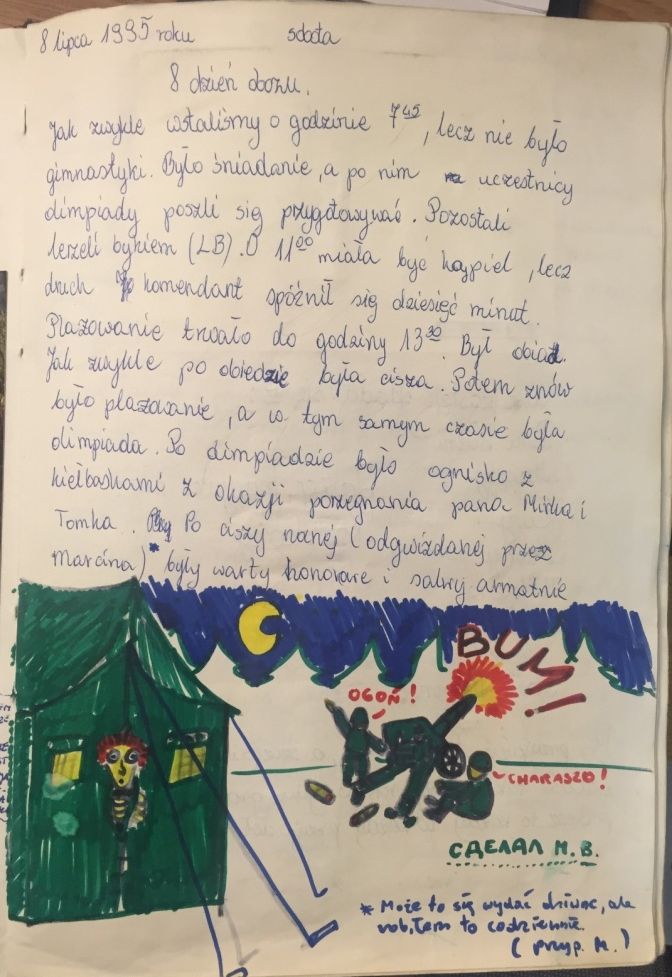 8 lipca 1995 roku sobota
8 dzień obozu.
Jak zwykle wstaliśmy o godzinie 7⁴⁵, lecz nie było
gimnastyki. Było śniadanie, a po nim uczestnicy
olimpiady poszli się przygotowywać. Pozostali
leżeli bykiem (LB). O 11⁰⁰ miała być kąpiel, lecz
druh komendant spóźnił się dziesięć minut.
Plażowanie trwało do godziny 13³⁰. Był obiad.
Jak zwykle po obiedzie była cisza. Potem znów
było plażowanie, a w tym samym czasie była
olimpiada. Po olimpiadzie było ognisko z
kiełbaskami z okazji pożegnania pana Mirka i
Tomka. Po ciszy nocnej (odgwizdanej przez
Marcina)* były warty honorowe i salwy armatnie
BUM!
OGOŃ!
CHARASZO!
СДЕЛАЛ М.В.
* Może to się wydać dziwne, ale
robiłem to codziennie.
(przyp. M.)